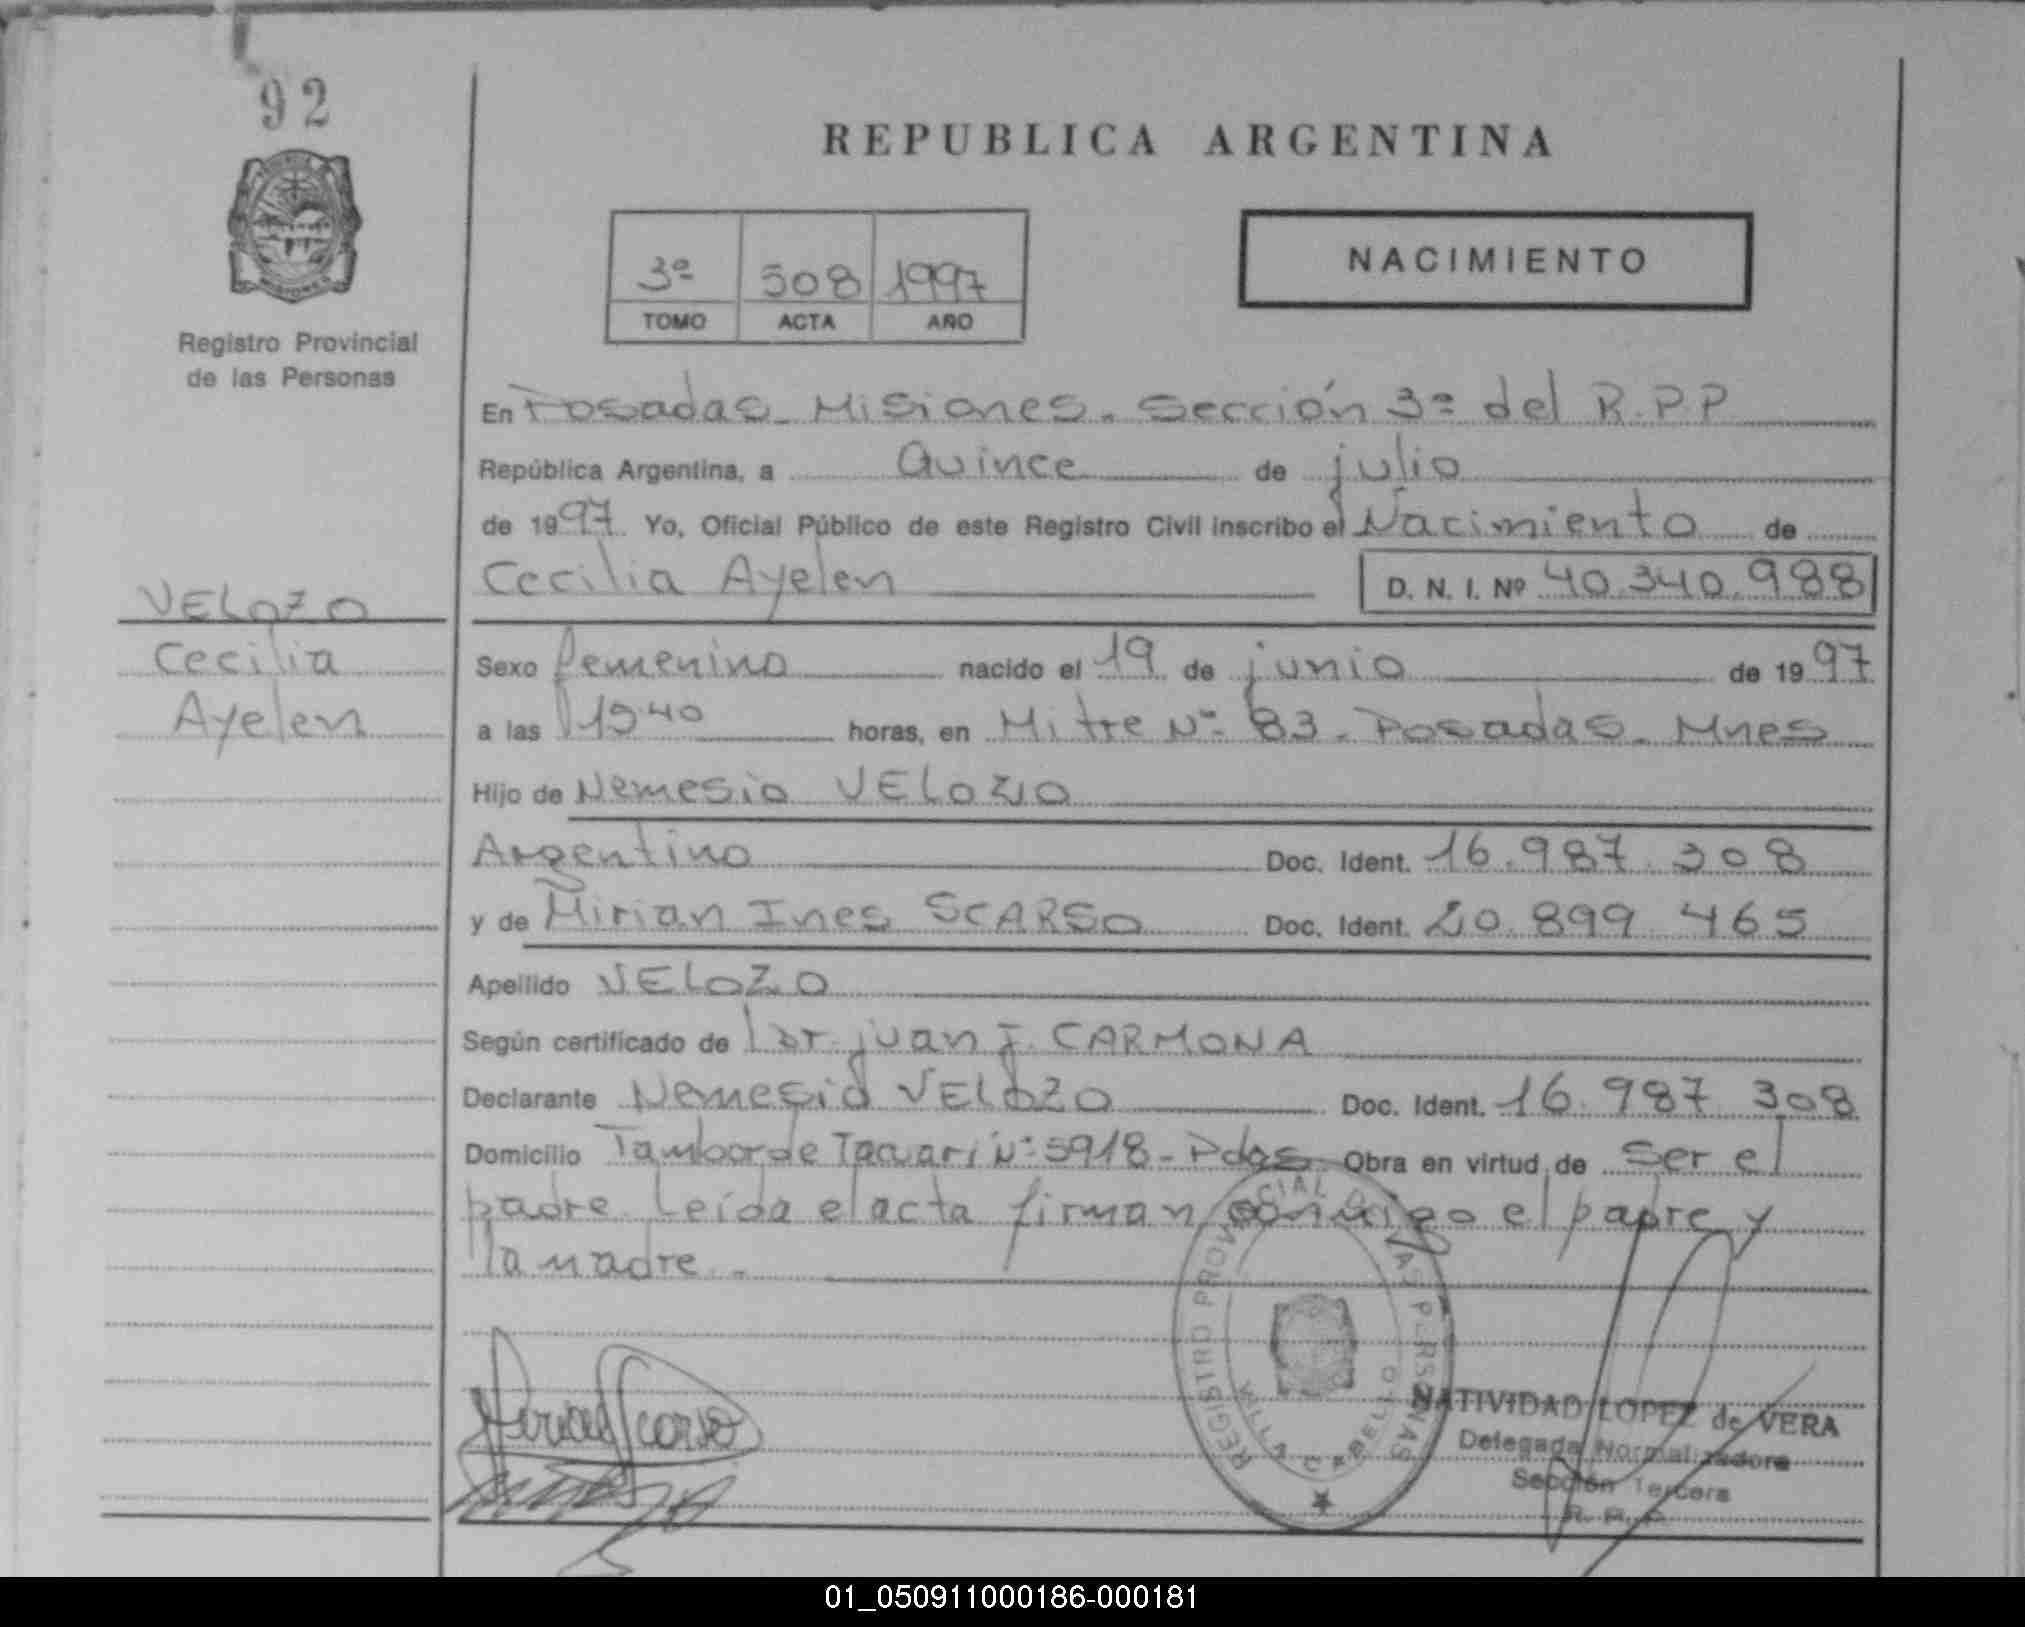 92
REPUBLICA ARGENTINA
MISIONES
Registro Provincial
de las Personas
3º 508 1997
TOMO ACTA AÑO
NACIMIENTO
En Posadas - Misiones - Sección 3ª del R.P.P
República Argentina, a Quince de julio
de 1997 Yo, Oficial Público de este Registro Civil inscribo el Nacimiento de
Cecilia Ayelen D. N. I. Nº 40.340.988
VELOZO
Cecilia
Ayelen
Sexo femenino nacido el 19 de junio de 1997
a las 1940 horas, en Mitre Nº 83 - Posadas - Mnes
Hijo de Nemesio VELOZO
Argentino Doc. Ident. 16.987.308
y de Mirian Ines SCARSO Doc. Ident. 20.899.465
Apellido VELOZO
Según certificado de Dr. juan J. CARMONA
Declarante Nemesio VELOZO Doc. Ident. 16.987.308
Domicilio Tambor de Tacuari Nº 5918 - Pdas Obra en virtud de Ser el
padre. Leída el acta firman conmigo el padre y
la madre. -
REGISTRO PROVINCIAL DE LAS PERSONAS
VILLA CABELLO
Mirian Scarso
NATIVIDAD LOPEZ de VERA
Delegada Normalizadora
Sección Tercera
R. P. P.
01_050911000186-000181